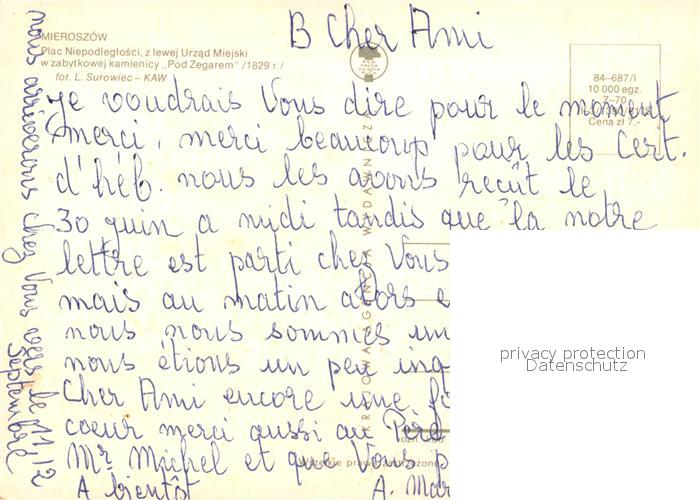 B Cher Ami
MIEROSZÓW
Plac Niepodległości, z lewej Urząd Miejski
w zabytkowej kamienicy „Pod Zegarem” /1829 r./
fot. L. Surowiec — KAW
84-687/I
10 000 egz.
Z-70
Cena zł 7.-
Je voudrais Vous dire pour le moment
merci, merci beaucoup pour les Cert.
d'héb. nous les avons reçût le
30 juin a midi tandis que la notre
lettre est parti chez Vous
mais au matin alors e
nous nous sommes un
nous étions un peu inq
Cher Ami encore une fo
coeur merci aussi au Père
Mr. Michel et que Vous p
A bientôt A. Mar
nous arriverons chez Vous vers le 11, 12
Septembre
KRAJOWA AGENCJA WYDAWNICZA
privacy protection
Datenschutz